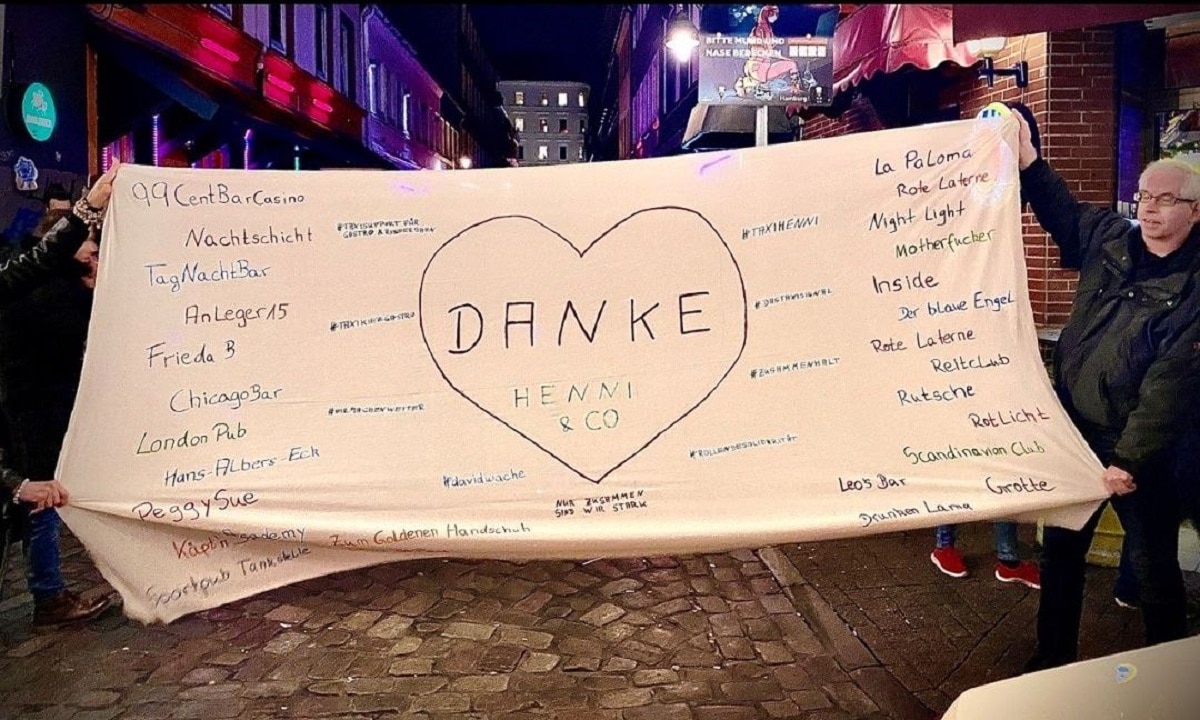 BITTE MUND UND
NASE BEDECKEN
Hamburg
99CentBarCasino
Nachtschicht
TagNachtBar
AnLeger15
Frieda B
ChicagoBar
London Pub
Hans-Albers-Eck
PeggySue
Käpt'n
Sportpub Tankstelle
Zum Goldenen Handschuh
#TAXISUPPORT FÜR
#WIRMACHENWEITER
#davidwache
DANKE
HENNI
& CO
NUR ZUSAMMEN
SIND WIR STARK
#TAXIHENNI
#ZUSAMMENHALT
#ROLLENDESOLIDARITÄT
La PaLoma
Rote Laterne
Night Light
Motherfucker
Inside
Der blaue Engel
Rote Laterne
ReitcLub
Rutsche
RotLicht
Scandinavian Club
Leo's Bar
Grotte
Drunken Lama